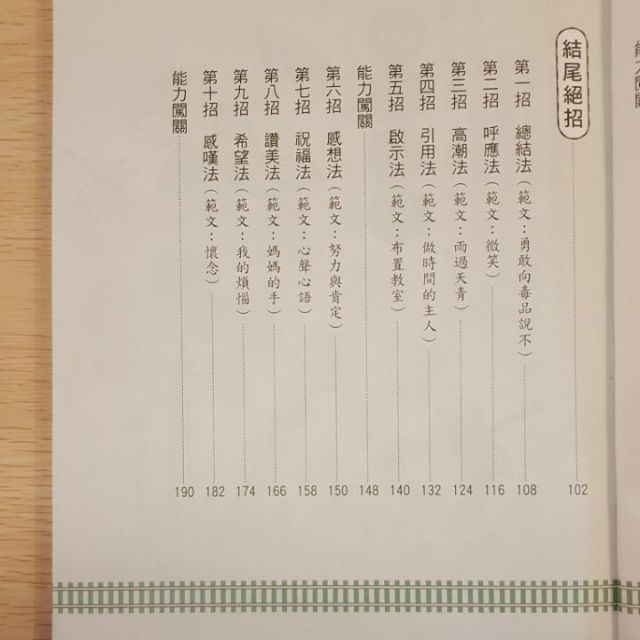 結尾絕招 102
第一招 總結法（範文：勇敢向毒品說不） 108
第二招 呼應法（範文：微笑） 116
第三招 高潮法（範文：雨過天青） 124
第四招 引用法（範文：做時間的主人） 132
第五招 啟示法（範文：布置教室） 140
能力闖關 148
第六招 感想法（範文：努力與肯定） 150
第七招 祝福法（範文：心聲心語） 158
第八招 讚美法（範文：媽媽的手） 166
第九招 希望法（範文：我的煩惱） 174
第十招 感嘆法（範文：懷念） 182
能力闖關 190